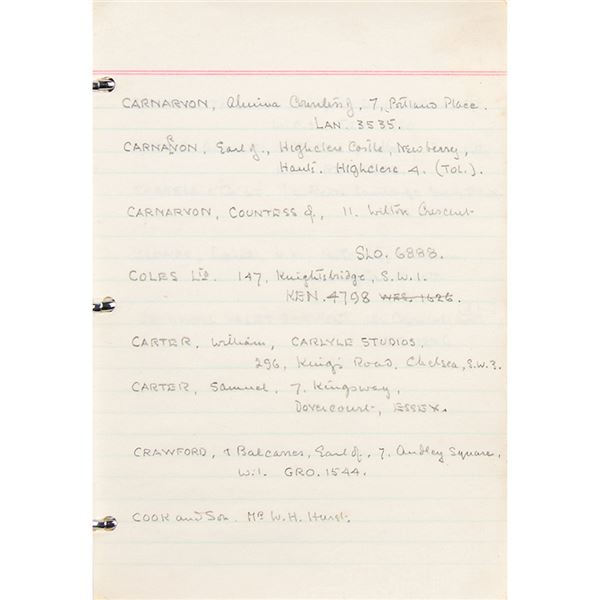 CARNARVON, Almina Countess of, 7, Portland Place.
LAN. 3535.
CARNARVON. Earl of., Highclere Castle, Newberry,
Hants. Highclere 4. (TOL.).
CARNARVON, COUNTESS of, 11. Wilton Crescent
SLO. 6888.
COLES LTD. 147, Knightsbridge, S.W.1.
KEN. 4798 WES. 1626.
CARTER, William, CARLYLE STUDIOS.
296, King's Road, Chelsea, S.W.3.
CARTER, Samuel, 7. Kingsway,
Dovercourt, ESSEX.
CRAWFORD, & Balcarres, Earl of, 7. Audley Square,
W.1. GRO. 1544.
COOK and Son. Mr W. H. Hurst.